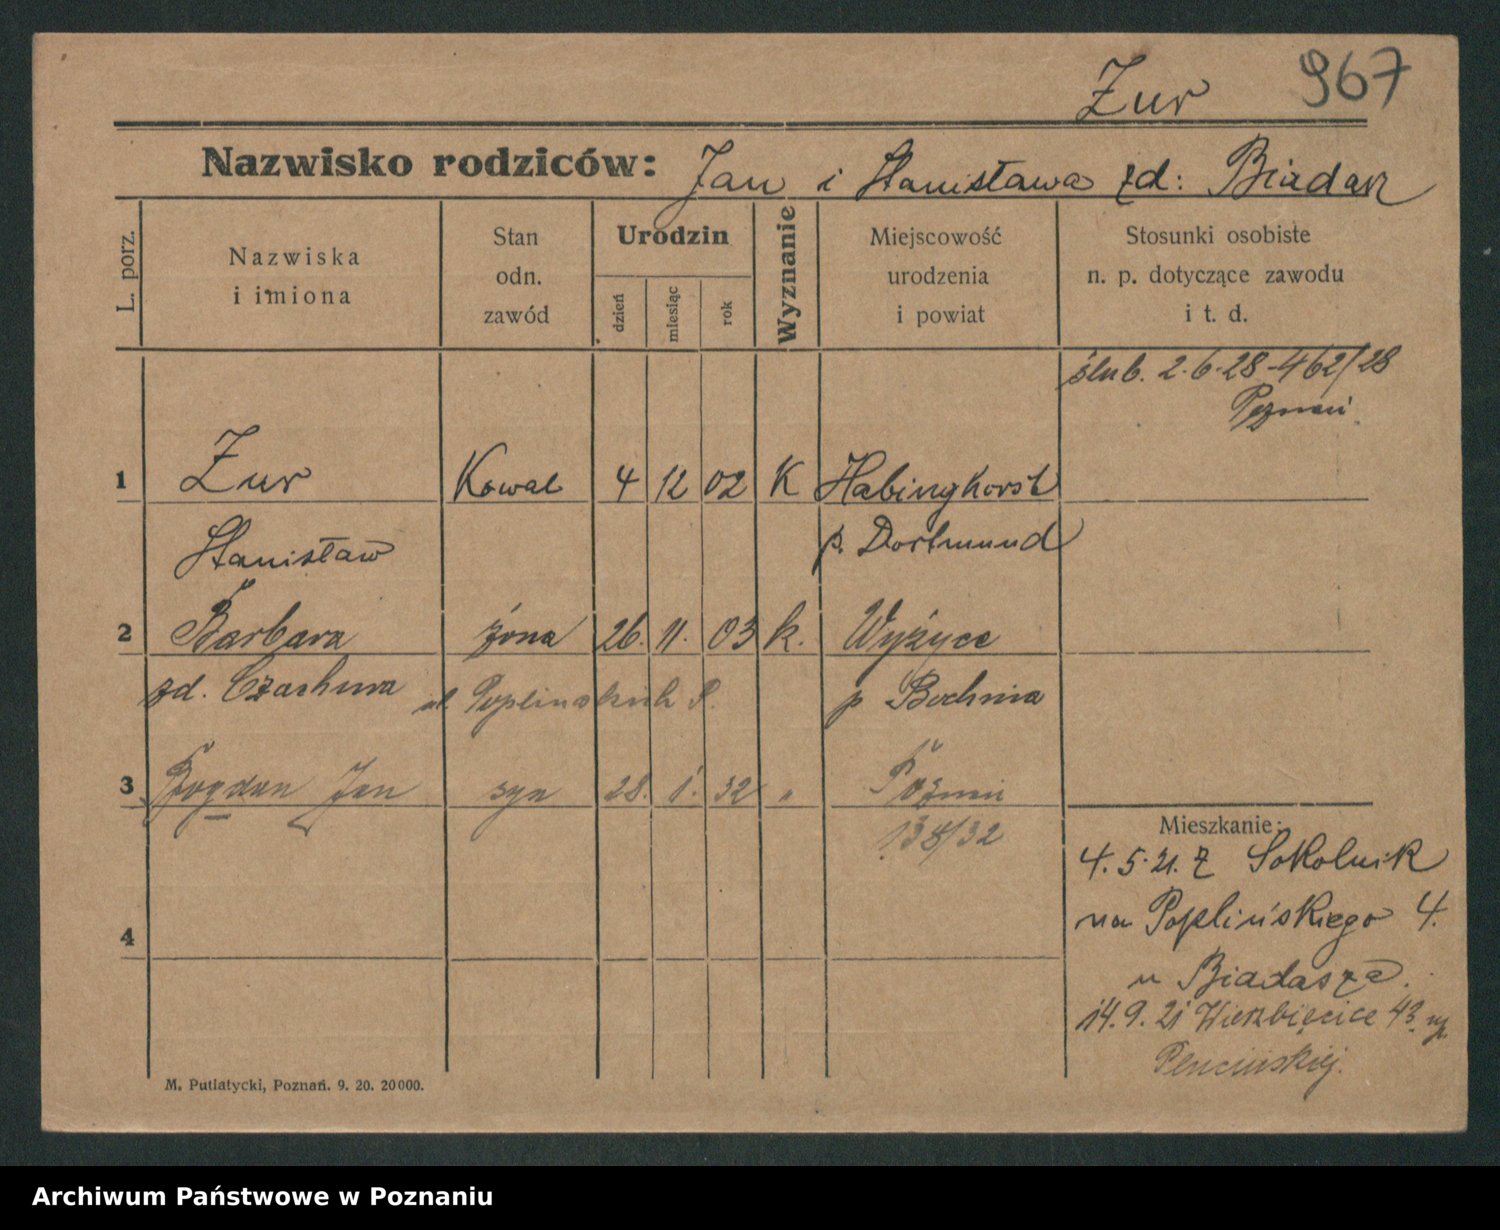 Zur 967
Nazwisko rodziców: Jan i Stanisława zd: Biadasz
L. porz.
Nazwiska
i imiona
Stan
odn.
zawód
Urodzin
dzień
miesiąc
rok
Wyznanie
Miejscowość
urodzenia
i powiat
Stosunki osobiste
n. p. dotyczące zawodu
i t. d.
ślub. 2.6.28-462/28
Poznań
1 Zur Kowal 4 12 02 K Habinghorst
Stanisław p. Dortmund
2 Barbara żona 26. 11. 03 k. Wyżyce
zd. Czachura ul. P. p Bochnia
3 Bogdan Jan syn 28. 1. 32 " Poznań
138/32
4
Mieszkanie:
4.5.21. Z Sokolnik
na Poplińskiego 4.
u Biadasza.
14.9.21 Wierzbięcice 43
M. Putiatycki, Poznań. 9. 20. 20000.
Archiwum Państwowe w Poznaniu